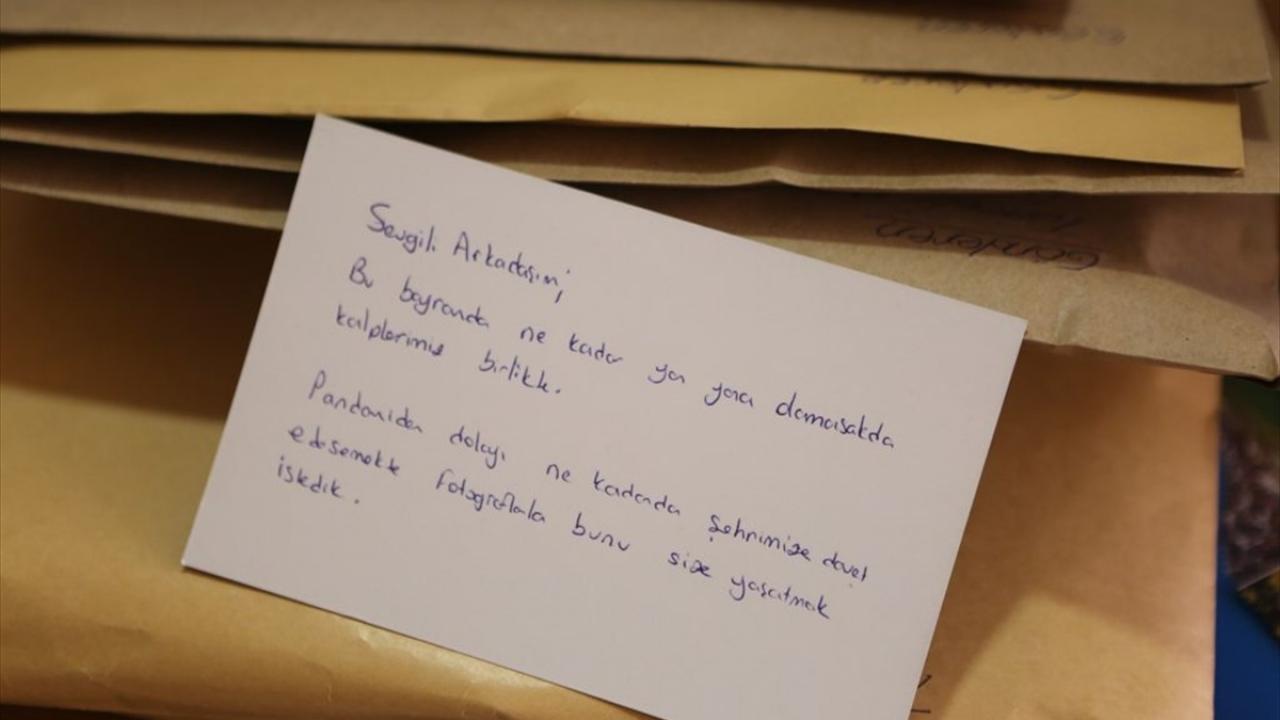 Sevgili Arkadaşım;
Bu bayramda ne kadar yan yana olamasakda
kalplerimiz birlikte.
Pandemiden dolayı ne kadarda şehrimize davet
edesemekte fotoğraflarla bunu size yaşatmak
istedik.
Gönderen